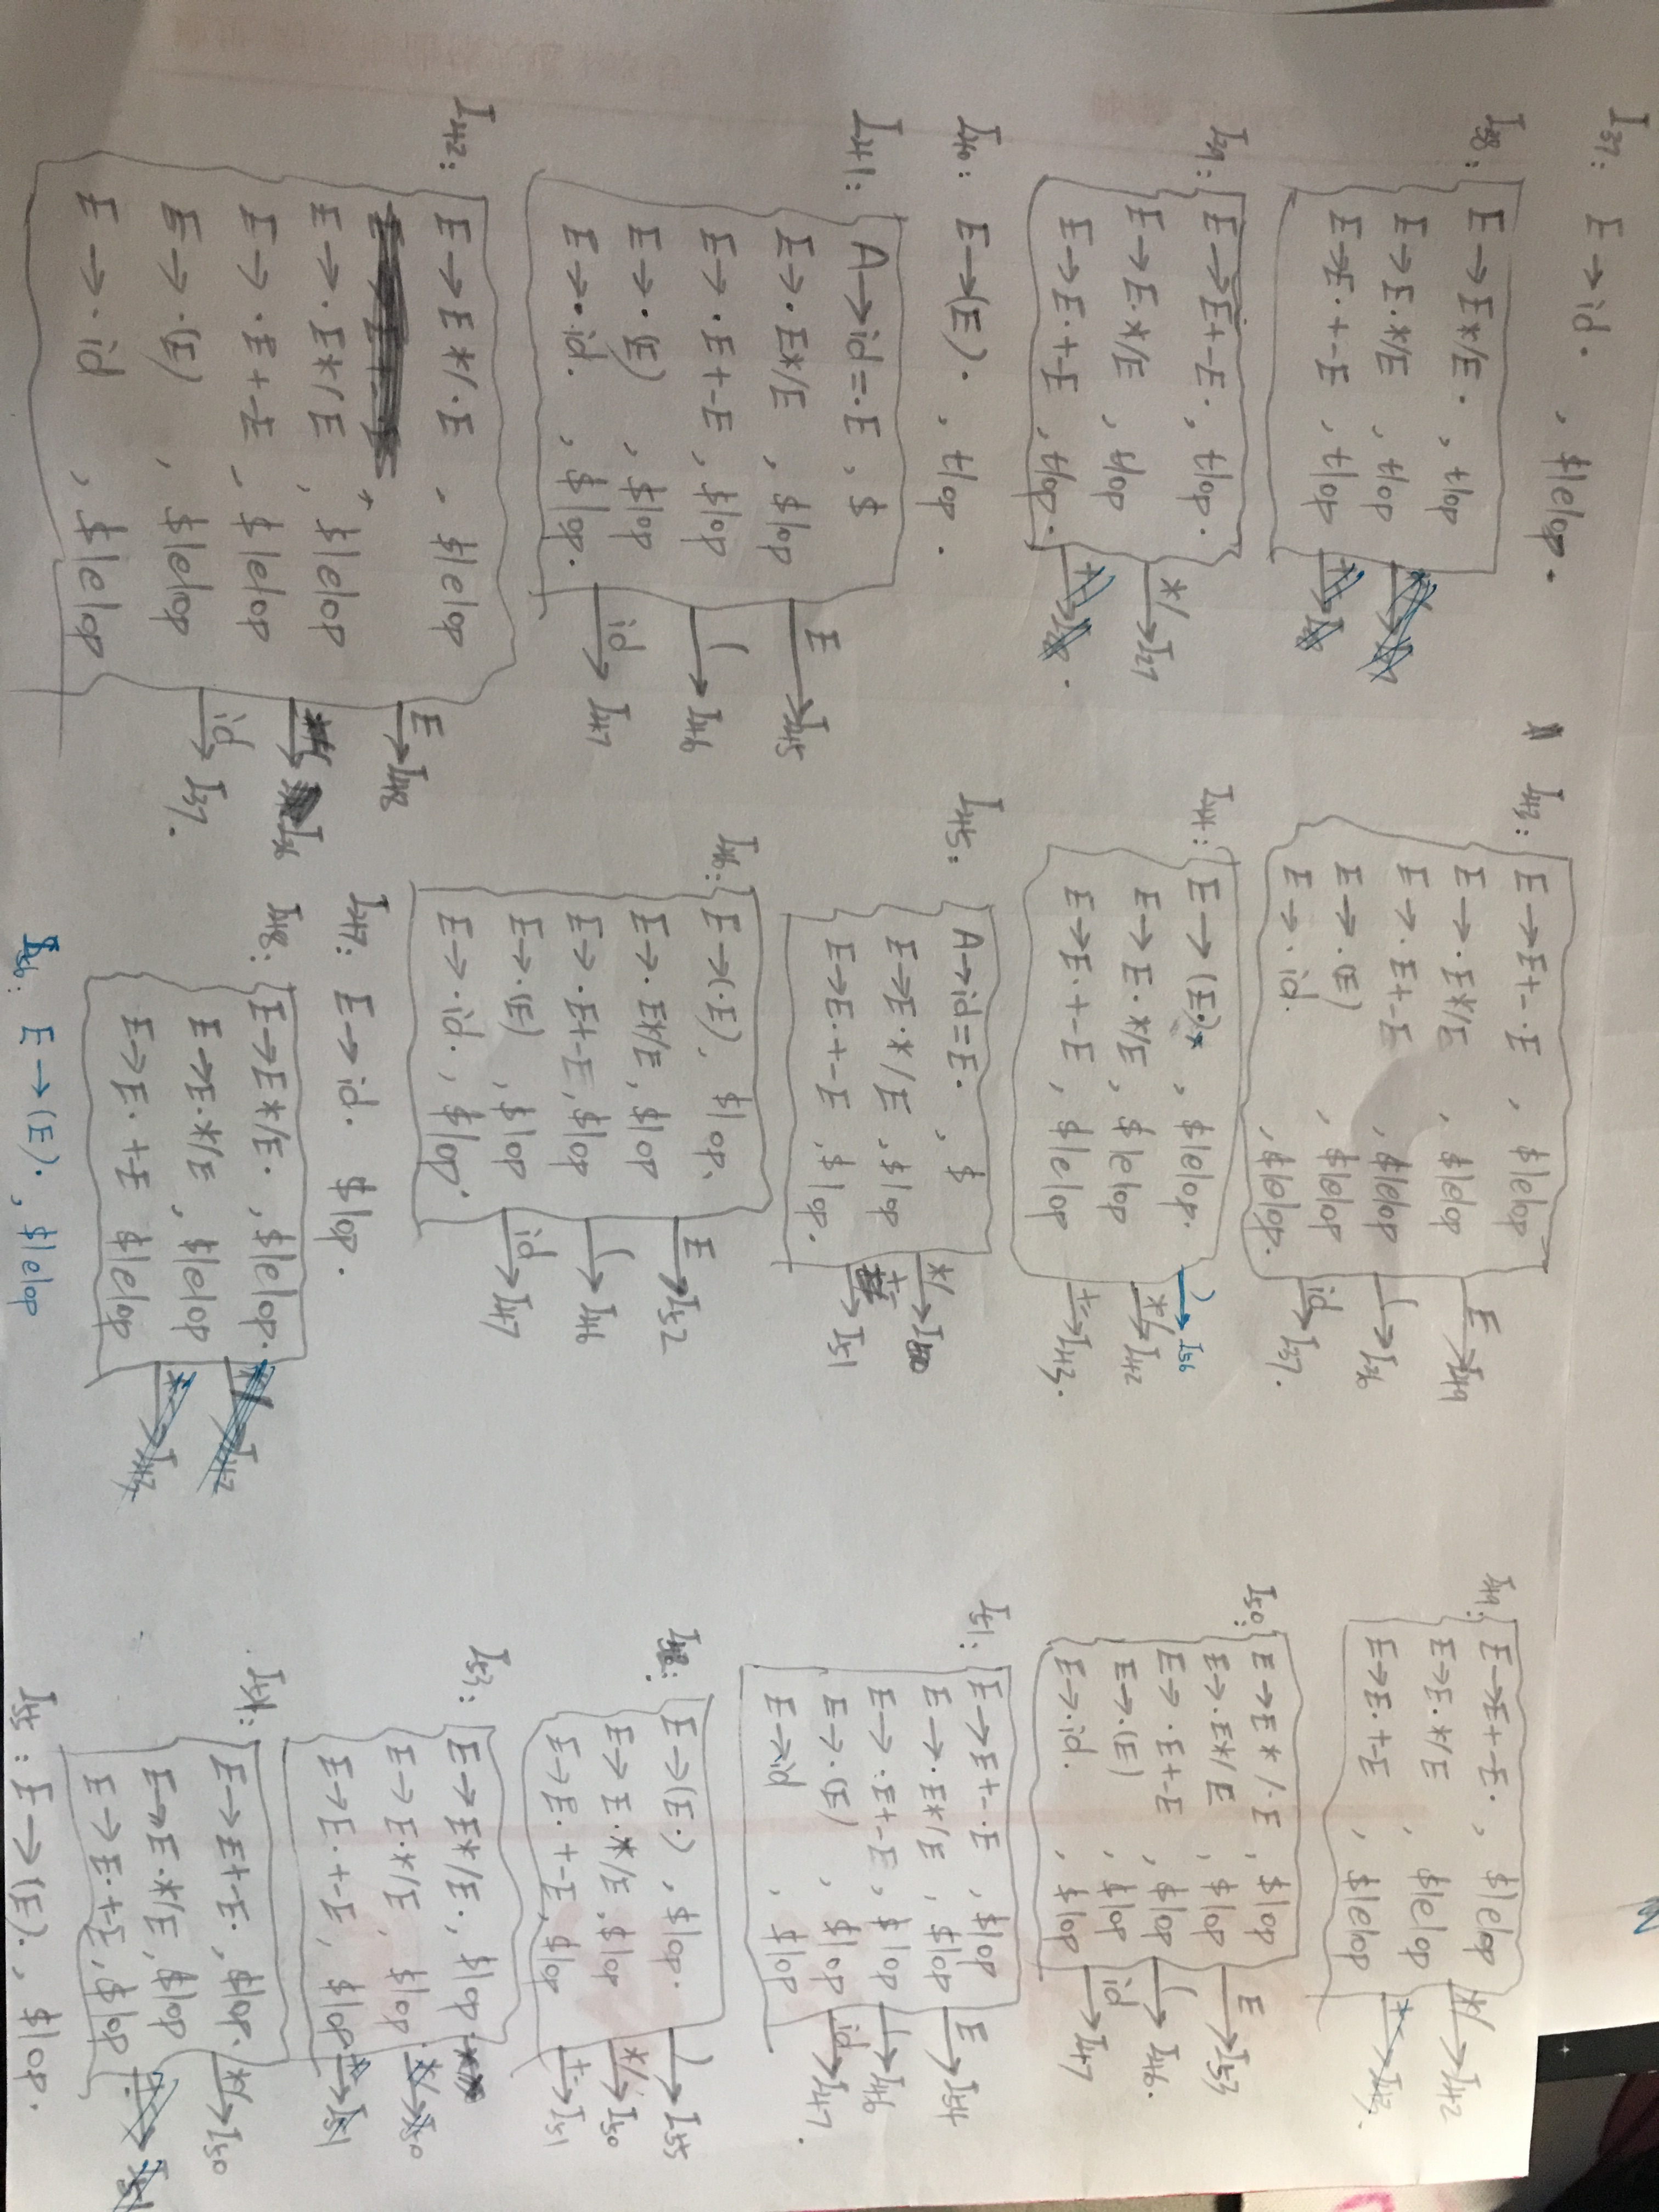 I37: E → id· , $|e|op.
I38: E → E*/E· , t|op
E → E·*/E , t|op
E → E·+-E , t|op
I39: E → E+-E· , t|op.
E → E·*/E , t|op
E → E·+-E , t|op.
*/ → I27
I40: E → (E)· , t|op.
I41: A → id=·E , $
E → ·E*/E , $|op
E → ·E+-E , $|op
E → ·(E) , $|op
E → ·id. , $|op.
E → I45
( → I46
id → I47
I42: E → E*/·E , $|e|op
E → ·E*/E , $|e|op
E → ·E+-E , $|e|op
E → ·(E) , $|e|op
E → ·id , $|e|op
E → I48
→ I36
id → I37.
I43: E → E+-·E , $|e|op
E → ·E*/E , $|e|op
E → ·E+-E , $|e|op
E → ·(E) , $|e|op
E → ·id. , $|e|op.
E → I49
( → I36
id → I37.
I44: E → (E·) , $|e|op.
E → E·*/E , $|e|op
E → E·+-E , $|e|op
) → I56
*/ → I42
+- → I43.
I45: A → id=E· , $
E → E·*/E , $|op
E → E·+-E , $|op.
*/ → I50
+- → I51
I46: E → (·E), $|op.
E → ·E*/E, $|op
E → ·E+-E, $|op
E → ·(E) , $|op
E → ·id. , $|op
E → I52
( → I46
id → I47
I47: E → id· $|op.
I48: E → E*/E· , $|e|op.
E → E·*/E , $|e|op
E → E·+E $|e|op
I56: E → (E)· , $|e|op
I49: E → E+-E· , $|e|op
E → E·*/E , $|e|op
E → E·+-E , $|e|op
*/ → I42
I50: E → E*/·E , $|op
E → ·E*/E , $|op
E → ·E+-E , $|op
E → ·(E) , $|op
E → ·id. , $|op
E → I53
( → I46.
id → I47
I51: E → E+-·E , $|op
E → ·E*/E , $|op
E → ·E+-E , $|op
E → ·(E) , $|op
E → id , $|op
E → I54
( → I46
id → I47.
I52: E → (E·) , $|op.
E → E·*/E , $|op
E → E·+-E , $|op
) → I55
*/ → I50
+- → I51
I53: E → E*/E· , $|op
E → E·*/E , $|op
E → E·+-E , $|op
I54: E → E+-E· , $|op.
E → E·*/E , $|op
E → E·+-E , $|op
*/ → I50
I55: E → (E)· , $|op.